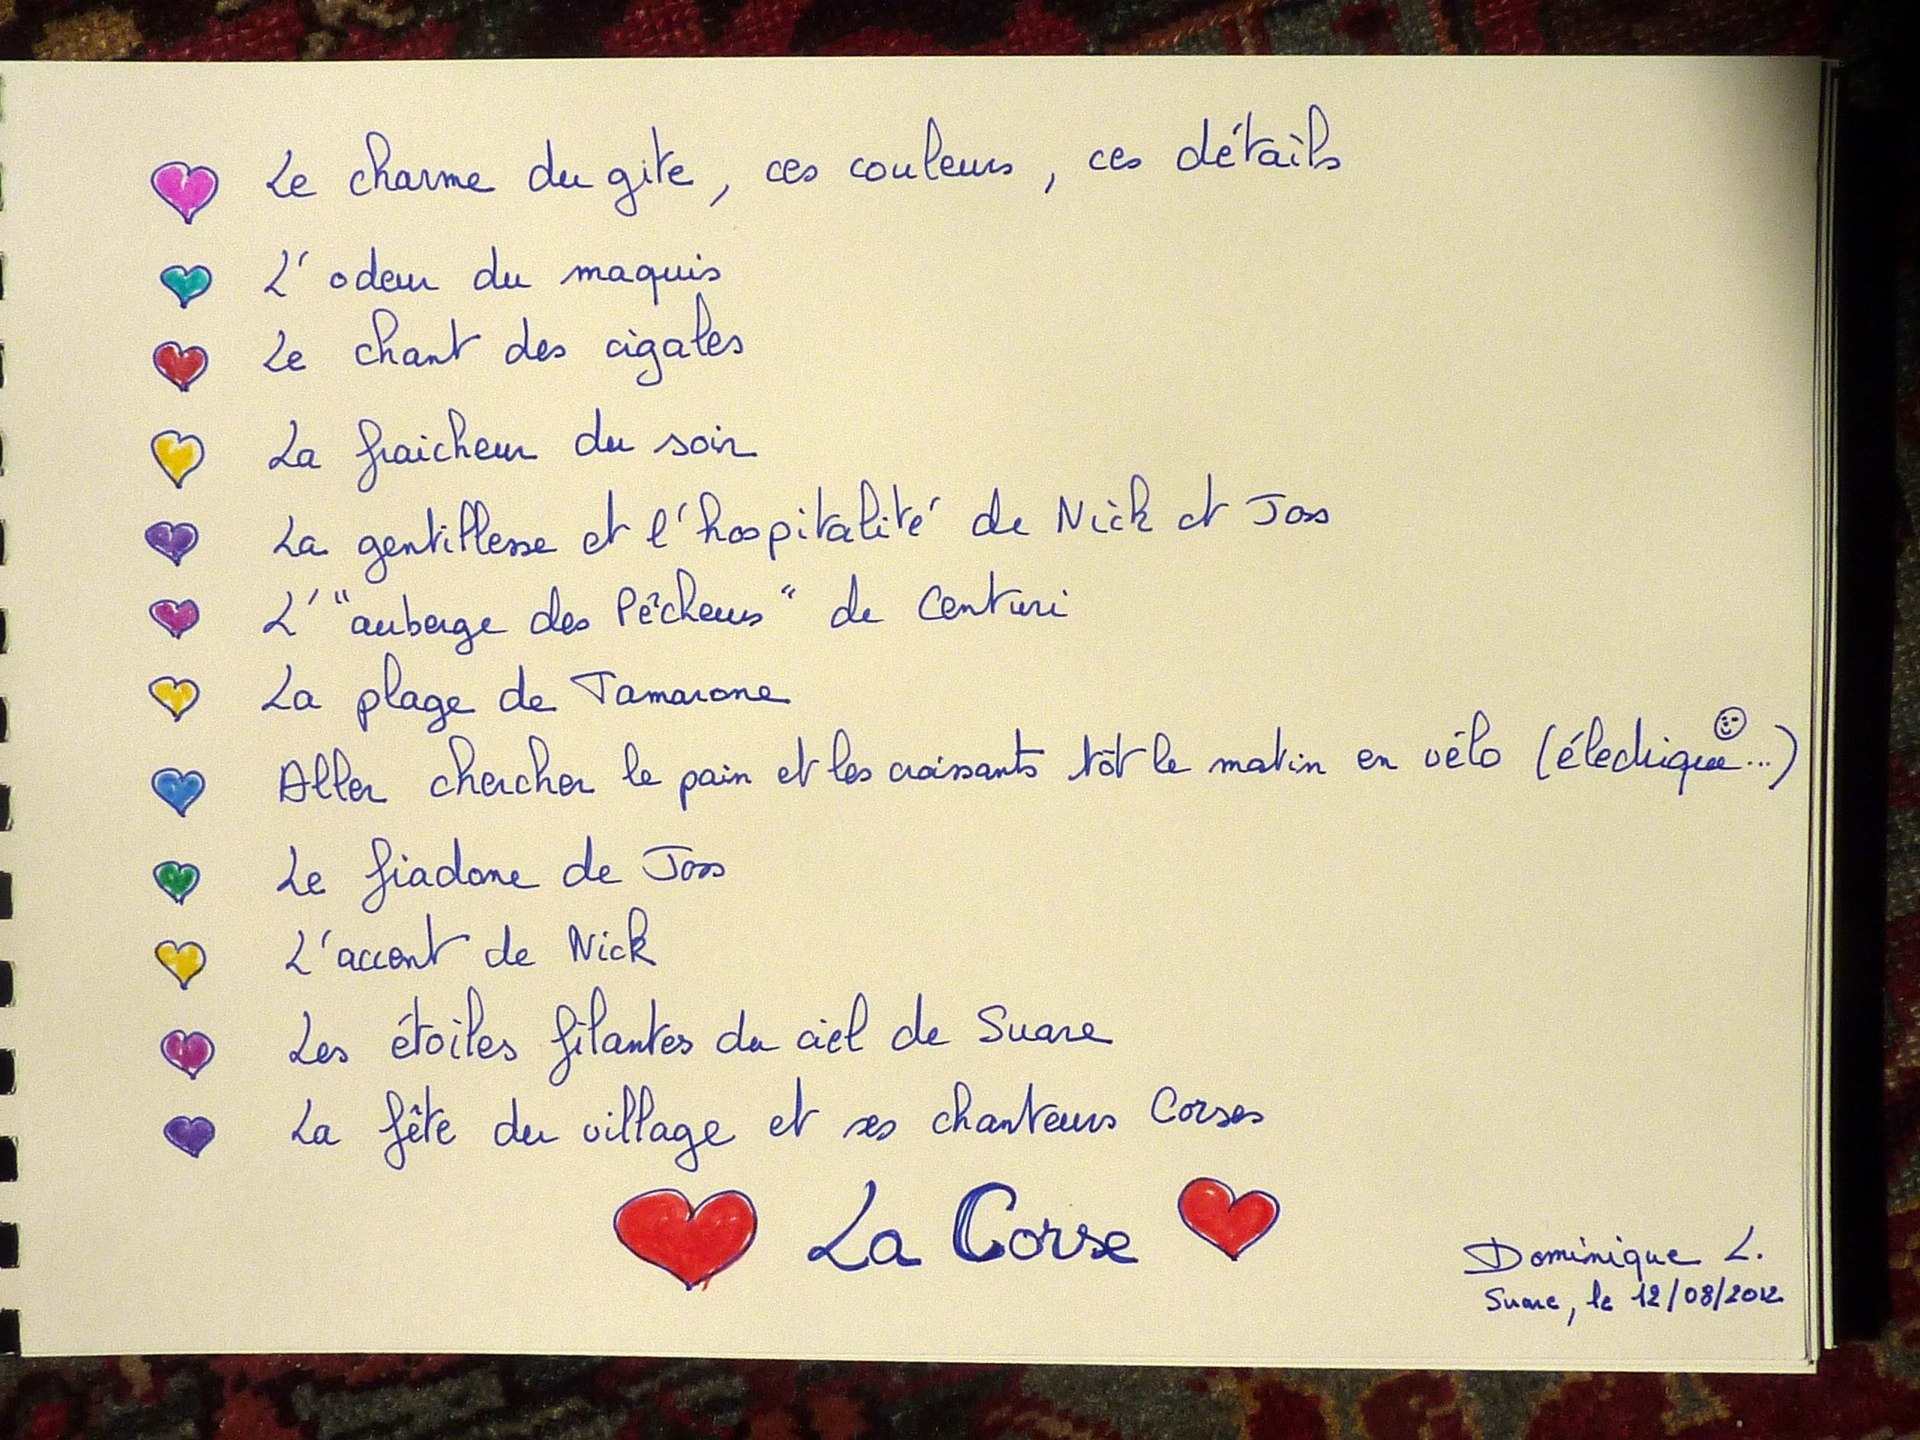 Le charme du gite, ces couleurs, ces détails
L'odeur du maquis
Le chant des cigales
La fraicheur du soir
La gentillesse et l'hospitalité de Nick et Joss
L'"auberge des Pêcheurs" de Centuri
La plage de Tamarone
Aller chercher le pain et les croissants tôt le matin en vélo (électrique...)
Le fiadone de Joss
L'accent de Nick
Les étoiles filantes du ciel de Suare
La fête du village et ses chanteurs Corses
La Corse
Dominique L.
Suare, le 12/08/2012